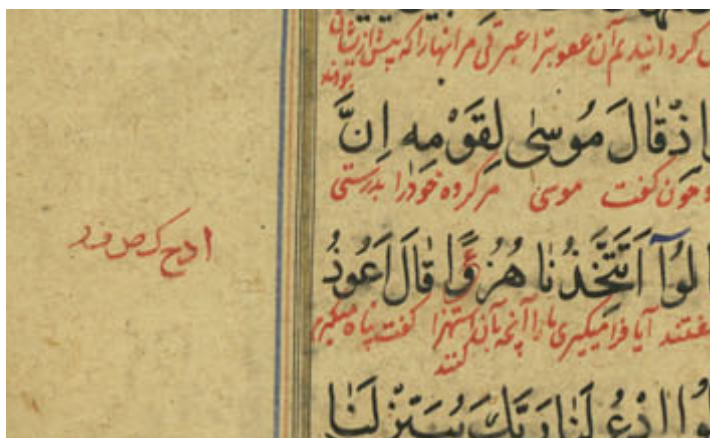 کردانیدیم آن عقوبترا عبرتی مر آنها را که پیش ازیشان
بودند
اِذْ قَالَ مُوسٰى لِقَوْمِهٖ اِنَّ
و چون گفت موسی مر گروه خود را بدرستی
لُوٓا اَتَتَّخِذُنَا هُزُوًا قَالَ اَعُوذُ
گفتند آیا فرا میگیری ما را آنچه بآن استهزا گفت پناه میگیرم
کنند
لُوا ادْعُ لَنَا رَبَّكَ يُبَيِّنْ لَنَا